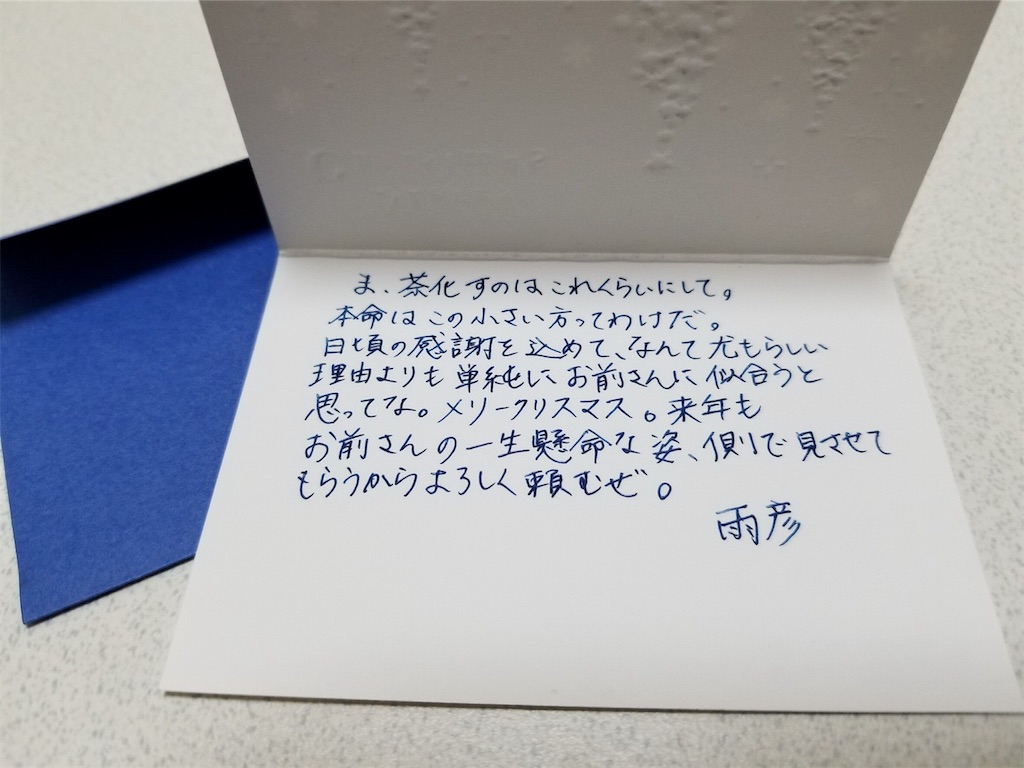 ま、茶化すのはこれくらいにして。
本命はこの小さい方ってわけだ。
日頃の感謝を込めて、なんて尤もらしい
理由よりも単純にお前さんに似合うと
思ってな。メリークリスマス。来年も
お前さんの一生懸命な姿、側で見させて
もらうからよろしく頼むぜ。
雨彦